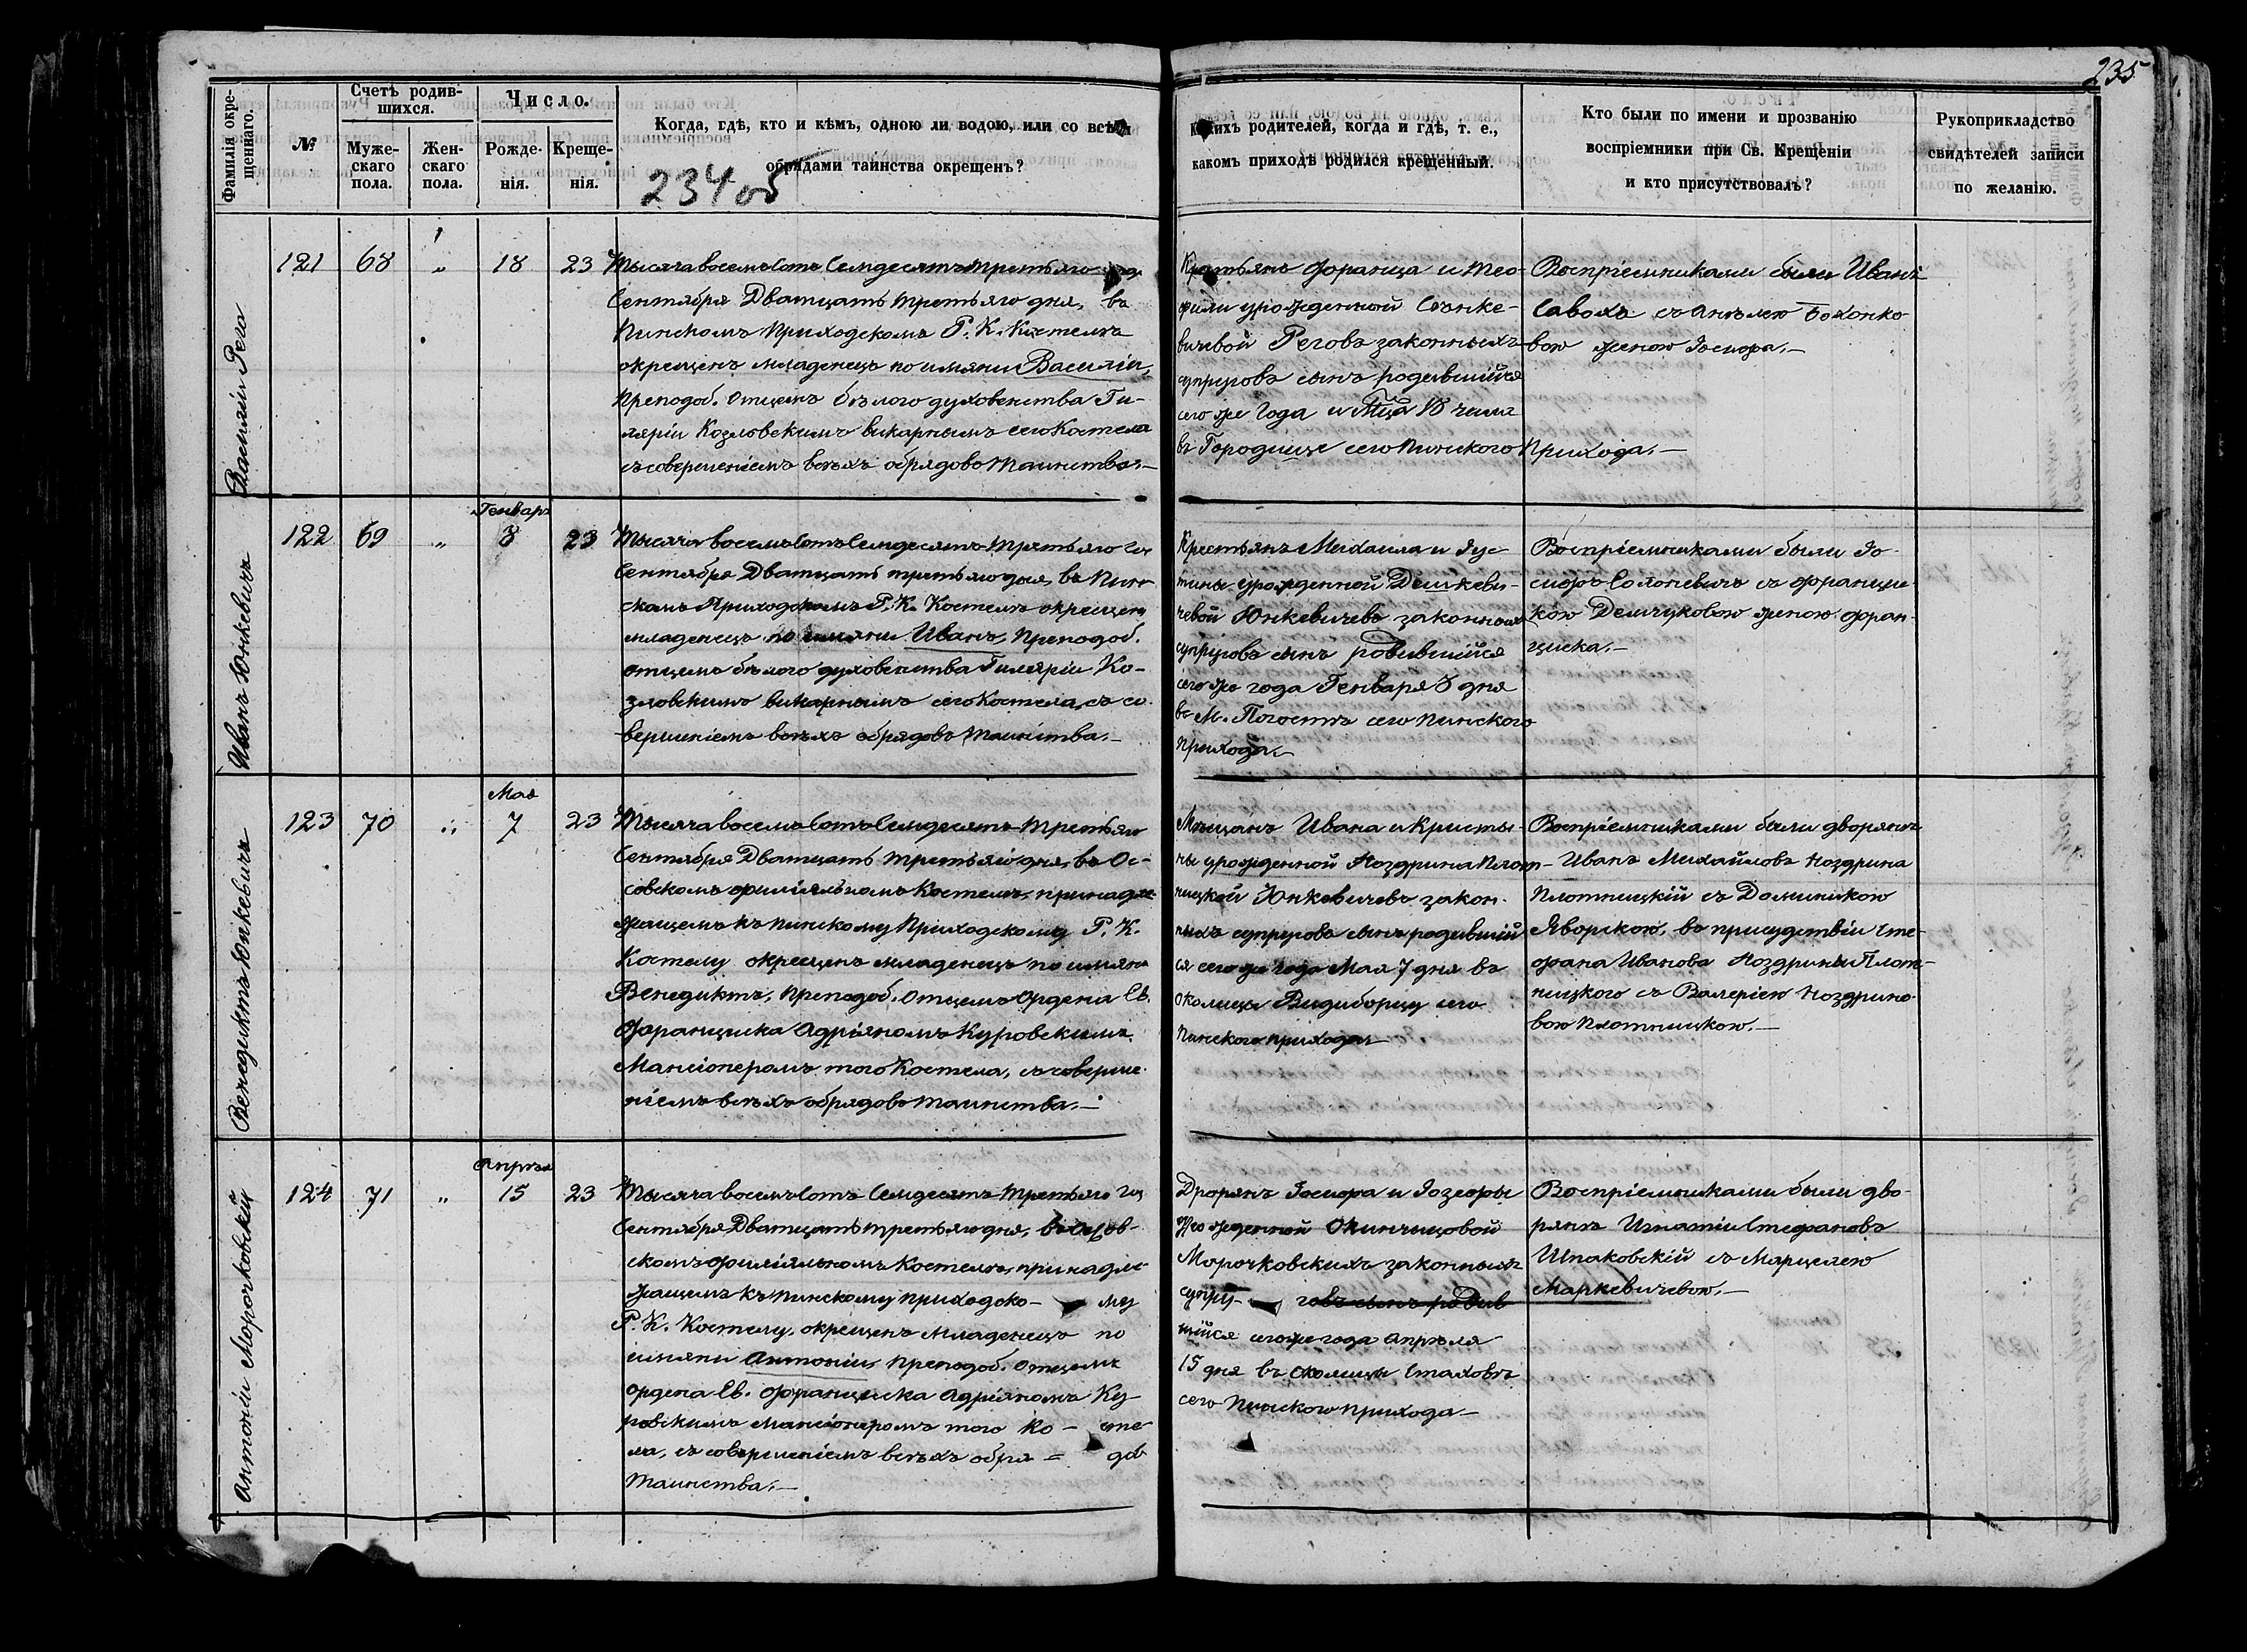 235
Фамилія окре-
щеннаго.
№
Счетъ родив-
шихся.
Муже-
скаго
пола.
Жен-
скаго
пола.
Число.
Рожде-
нія.
Креще-
нія.
Когда, гдѣ, кто и кѣмъ, одною ли водою, или со всѣми
обрядами таинства окрещенъ?
234об
родителей, когда и гдѣ, т. е.,
какомъ приходѣ родился крещенный.
Кто были по имени и прозванію
воспріемники при Св. Крещеніи
и кто присутствовалъ?
Рукоприкладство
свидѣтелей записи
по желанію.
Василій Рего
121 68 " 18 23
Тысяча восемьсотъ Семдесятъ третьяго
Сентября Дватцать третьяго дня, въ
Пинскомъ Приходскомъ Р. К. Костелѣ
окрещенъ младенецъ по имяни Василій,
Преподоб. Отцемъ бѣлого духовенства Ги-
ляріи Козловскимъ викарнымъ сего Костела
съ совершеніемъ всѣхъ обрядовъ таинства.—
Крстьянъ Франца и Тео-
фили урожденной Сѣнке-
вичевой Реговъ законныхъ
супруговъ сынъ родившійся
сего же года и Мца 18 числа
въ Городище сего Пинского Прихода.—
Воспріемниками были Иванъ
Савохъ съ Анѣлею Бохонко
вою женою Іосифа.—
Иванъ Юнкевичъ
122 69 " Генваря 8 23
Тысяча восемьсотъ Семдесятъ третьяго го
Сентября Дватцать третьяго дня, въ Пин-
скомъ Приходскомъ Р. К. Костелѣ окрещенъ
младенецъ по имяни Иванъ, Преподоб.
отцемъ бѣлого духовенства Гиляріи Ко-
зловскимъ викарнымъ сего Костела, съ со-
вершеніемъ всѣхъ обрядовъ таинства.—
Крстьянъ Михаила и Іус-
тины урожденной Демкеви-
чевой Юнкевичевъ законныхъ
супруговъ сынъ родившійся
сего же года Генваря 8 дня
въ М. Погостѣ сего Пинского
Прихода.—
Воспріемниками были Іо-
сифъ Солоневичъ съ Францис-
кою Демчуковою женою Фран-
циска.—
Венедиктъ Юнкевичъ
123 70 " Мая 7 23
Тысяча восемьсотъ Семдесятъ третьяго
Сентября Дватцать третьяго дня, въ Ос-
совскомъ филіяльномъ Костелѣ, принадле-
жащемъ къ Пинскому Приходскому Р. К.
Костелу окрещенъ младенецъ по имяни
Венедиктъ, Преподоб. Отцемъ Ордена Св.
Франциска Адріяномъ Куровскимъ
Мансіонеромъ того Костела, съ соверше-
ніемъ всѣхъ обрядовъ таинства.—
Мѣщанъ Ивана и Кристы-
ны урожденной Ноздрина Плот-
ницкой Юнкевичевъ закон-
ныхъ супруговъ сынъ родившій
ся сего же года Мая 7 дня въ
околицы Видиборцу сего
Пинского прихода
Воспріемниками были дворянъ
Иванъ Михайловъ Ноздрина
Плотницкій съ Доминикою
Яворскою, въ присудствіи Сте-
фана Иванова Ноздрины Плот-
ницкого съ Валеріею Ноздрино-
вою Плотницкою.—
Антоній Морочковскій
124 71 " Апрѣля 15 23
Тысяча восемьсотъ Семдесятъ третьяго го
Сентября Дватцать третьяго дня, въ Осов-
скомъ филіяльномъ Костелѣ, принадле-
жащемъ къ Пинскому приходско- му
Р. К. Костелу, окрещенъ младенецъ по
имяни Антоній, Преподоб. Отцемъ
Ордена Св. Франциска Адріяномъ Ку-
ровскимъ мансіонеромъ того Ко- сте-
ла, съ совершеніемъ всѣхъ обря= довъ
таинства.—
Дворянъ Іосифа и Іозефы
урожденной Окинчицовой
Морочковскихъ законныхъ
супру- говъ сынъ родив
шійся сего же года Апрѣля
15 дня въ околицы Стаховѣ
сего Пинского прихода—
Воспріемниками были дво-
рянъ Игнатій Стефановъ
Шпаковскій съ Марцелею
Маркевичевою.—